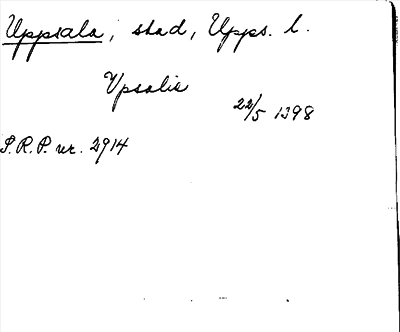 Uppsala, stad, Upps. l.
Vpsalie
22/5 1398
S.R.P. nr. 2914